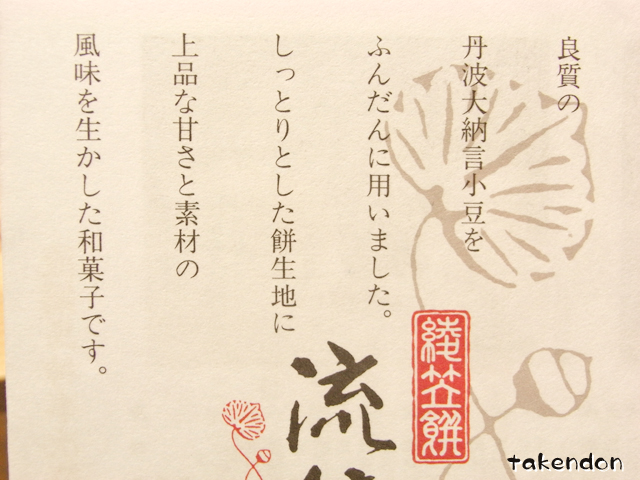 良質の
丹波大納言小豆を
ふんだんに用いました。
しっとりとした餅生地に
上品な甘さと素材の
風味を生かした和菓子です。
綾笠餅
流
takendon